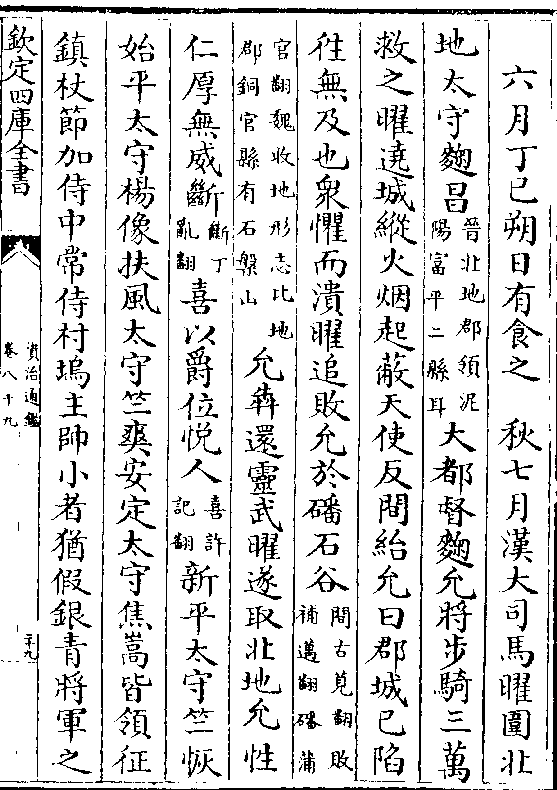 六月丁巳朔日有食之　秋七月漢大司馬曜圍北
地太守麴昌晉北地郡領泥陽富平二縣耳大都督麴允將步騎三萬
救之曜遶城縱火烟起蔽天使反間紿允曰郡城已陷
往無及也衆懼而潰曜追敗允於磻石谷間古莧翻敗補邁翻磻蒲
官翻魏收地形志北地郡銅官縣有石槃山允犇還靈武曜遂取北地允性
仁厚無威斷斷丁亂翻喜以爵位悅人喜許記翻新平太守竺恢
始平太守楊像扶風太守竺爽安定太守焦嵩皆領征
鎮杖節加侍中常侍村塢主帥小者猶假銀青將軍之
欽定四庫全書
資治通鑑
卷八十九